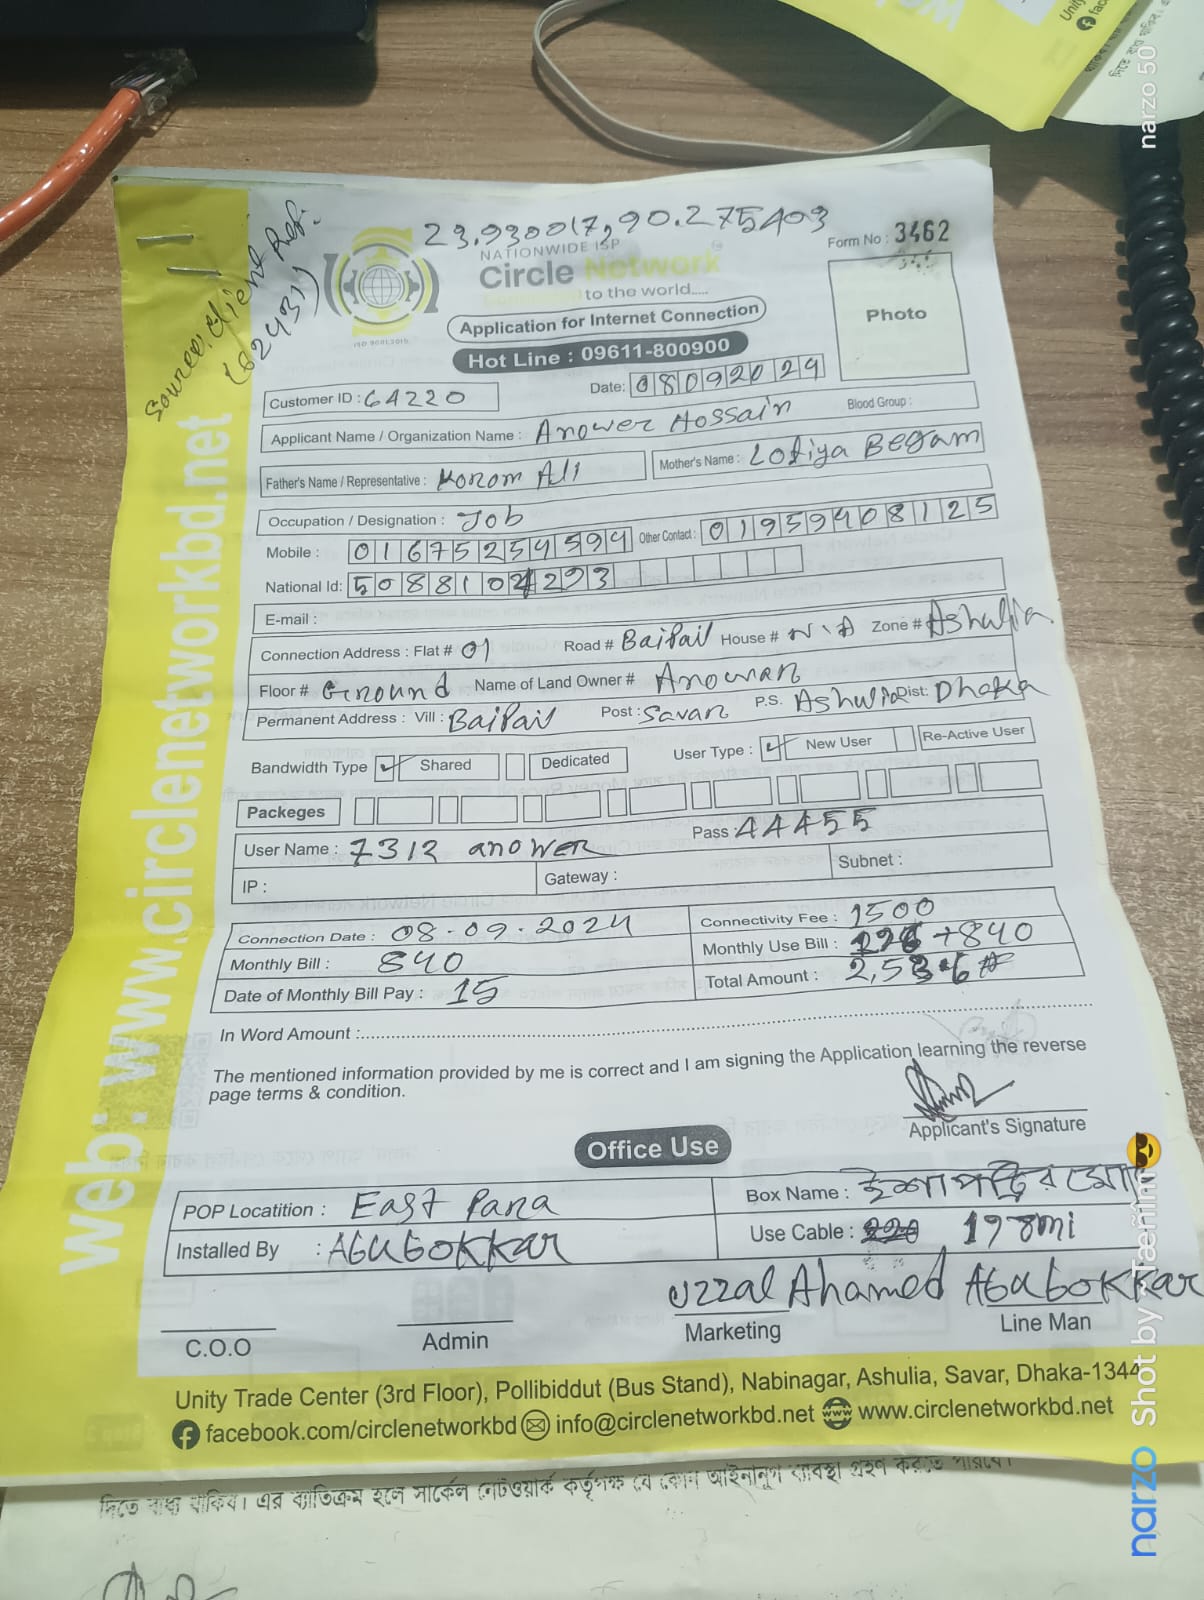 23.930017,90.275403
Source: Client Ref:
(62431)
NATIONWIDE ISP
Circle Network
to the world.....
ISO 9001:2015
Form No : 3462
Photo
Application for Internet Connection
Hot Line : 09611-800900
Customer ID : 64220 Date: 08092024
Applicant Name / Organization Name : Anower Hossain Blood Group :
Father's Name / Representative : Korom Ali Mother's Name : Lotiya Begam
Occupation / Designation : Job
Mobile : 01675254594 Other Contact : 01959408125
National Id: 5088104293
E-mail :
Connection Address : Flat # 01 Road # Baipail House # N\A Zone # Ashulia
Floor # Ground Name of Land Owner # Anowar
Permanent Address : Vill : Baipail Post : Savar P.S. Ashulia Dist: Dhaka
Bandwidth Type Shared Dedicated User Type : New User Re-Active User
Packeges
User Name : 7312 anower Pass : AAA55
IP : Gateway : Subnet :
Connection Date : 08-09-2024 Connectivity Fee : 1500
Monthly Bill : 840 Monthly Use Bill : +840
Date of Monthly Bill Pay : 15 Total Amount :
In Word Amount :
The mentioned information provided by me is correct and I am signing the Application learning the reverse
page terms & condition.
Applicant's Signature
Office Use
POP Locatition : East Para Box Name :
Installed By : Abubokkar Use Cable : 198mi
Uzzal Ahamed Abubokkar
C.O.O Admin Marketing Line Man
Unity Trade Center (3rd Floor), Pollibiddut (Bus Stand), Nabinagar, Ashulia, Savar, Dhaka-1344
facebook.com/circlenetworkbd info@circlenetworkbd.net www.circlenetworkbd.net
web: www.circlenetworkbd.net
দিতে বাধ্য থাকিব। এর ব্যতিক্রম হলে সার্কেল নেটওয়ার্ক কর্তৃপক্ষ যে কোন আইনানুগ ব্যবস্থা গ্রহণ করতে পারবে।
narzo Shot by Taenim
narzo 50